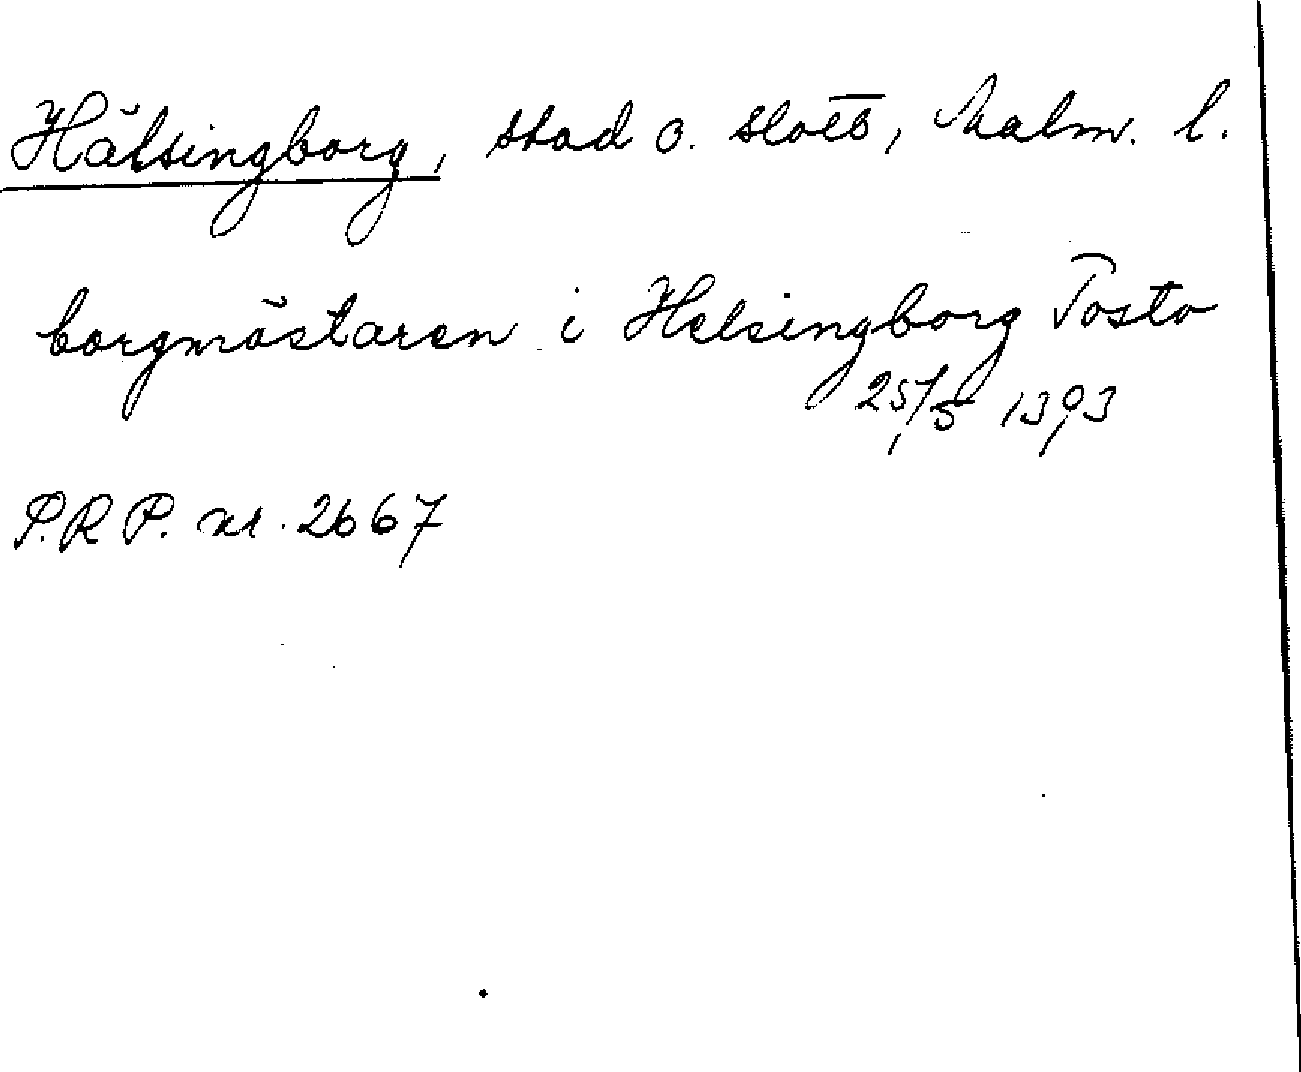 Hälsingborg, stad o. slott, Malm. l.
borgmästaren i Helsingborg Tosto
25/5 1393
P.R P. nr. 2667